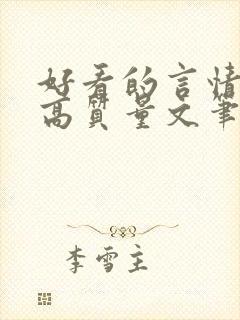 好看的言情
高质量文笔
李雪主